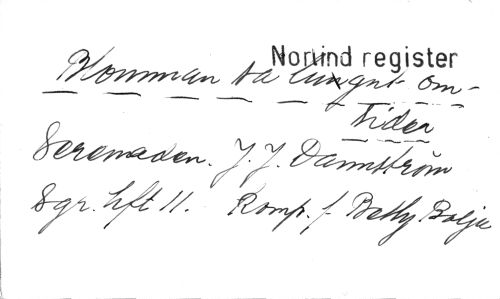 Norlind register
Blomman va lungnt om-
tider
Serenaden. J. J. Dannström
Sgr. hft 11. Komp. f. Betty Boije